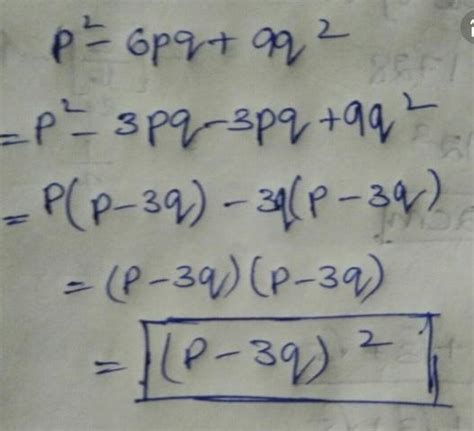 p² - 6pq + 9q²
= p² - 3pq - 3pq + 9q²
= p(p - 3q) - 3q(p - 3q)
= (p - 3q)(p - 3q)
= (p - 3q)²